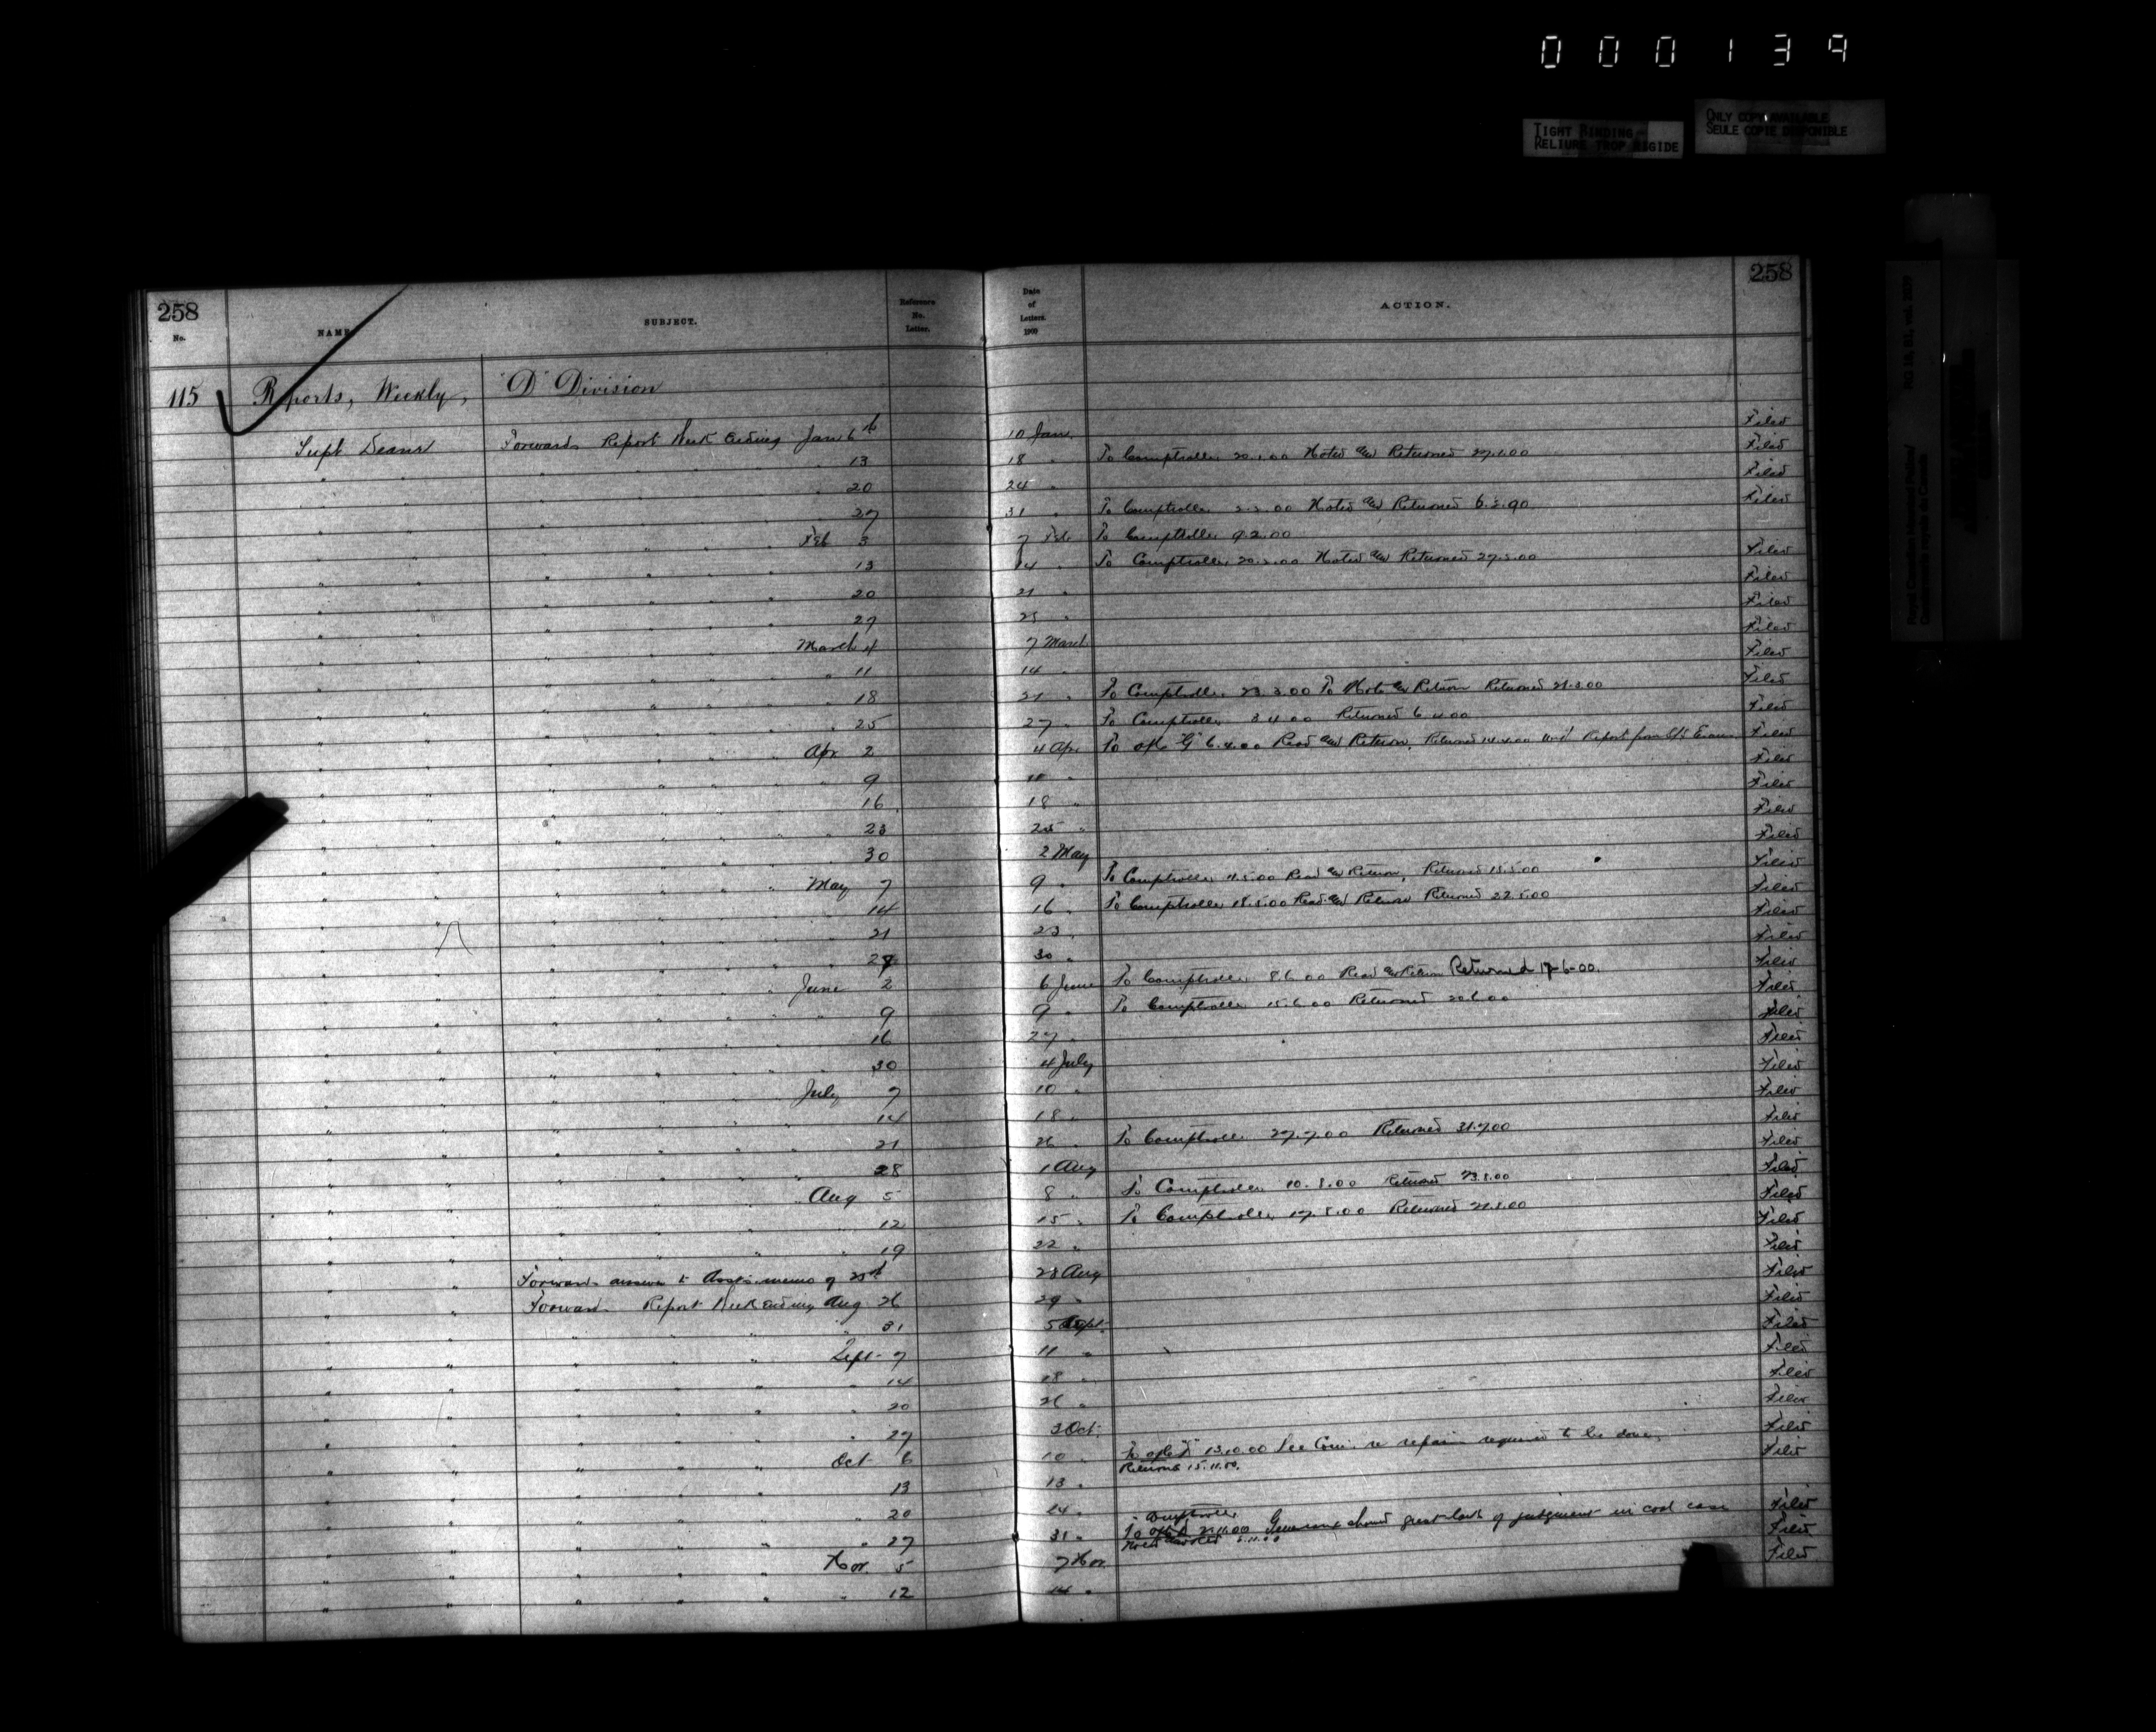 000139
TIGHT BINDING
RELIURE TROP RIGIDE
ONLY COPY AVAILABLE
SEULE COPIE DISPONIBLE
Royal Canadian Mounted Police/
Gendarmerie royale du Canada
258 258
No. NAME SUBJECT. Reference No. Letter. Date of Letters. 1900 ACTION.
115 Reports, Weekly, "D" Division
Supt Deane Forwards Report Week Ending Jan 6th 10 Jan. Filed
" " " " " " 13 18 " To Comptroller 20.1.00 Noted and Returned 27.1.00 Filed
" " " " " " 20 24 " Filed
" " " " " " 27 31 " To Comptroller 2.2.00 Noted and Returned 6.2.00 Filed
" " " " " Feb 3 7 Feb To Comptroller 9.2.00
" " " " " " 13 14 " To Comptroller 20.2.00 Noted and Returned 27.2.00 Filed
" " " " " " 20 21 " Filed
" " " " " " 27 28 " Filed
" " " " " March 4 7 March Filed
" " " " " " 11 14 " Filed
" " " " " " 18 21 " To Comptroller 23.3.00 To Note and Return Returned Filed
" " " " " " 25 27 " To Comptroller 3 4 00 Returned 6 4 00 Filed
" " " " " Apr 2 4 Apr To "G" 6.4.00 Read and Return, Returned 14.4.00 Report from Filed
" " " " " " 9 10 " Filed
" " " " " " 16 18 " Filed
" " " " " " 23 25 " Filed
" " " " " " 30 2 May Filed
" " " " " May 7 9 " To Comptroller 11.5.00 Read and Return, Returned 15.5.00 Filed
" " " " " " 14 16 " To Comptroller 18.5.00 Read and Return Returned 22.5.00 Filed
" " " " " " 21 23 " Filed
" " " " " " 27 30 " Filed
" " " " " June 2 6 June To Comptroller 8 6 00 Read and Return Returned 17-6-00. Filed
" " " " " " 9 9 " To Comptroller 15.6.00 Returned 20.6.00 Filed
" " " " " " 16 27 " Filed
" " " " " " 30 4 July Filed
" " " " " July 7 10 " Filed
" " " " " " 14 18 " Filed
" " " " " " 21 26 " To Comptroller 27.7.00 Returned 31.7.00 Filed
" " " " " " 28 1 Aug Filed
" " " " " Aug 5 8 " To Comptroller 10.8.00 Returned Filed
" " " " " " 12 15 " To Comptroller 17.8.00 Returned 21.8.00 Filed
" " " " " " 19 22 " Filed
" " Forwards answer to memo of 28 Aug Filed
" " Forwards Report Week Ending Aug 26 29 " Filed
" " " " " " 31 5 Sept. Filed
" " " " " Sept. 7 11 " Filed
" " " " " " 14 18 " Filed
" " " " " " 20 26 " Filed
" " " " " " 27 3 Oct. Filed
" " " " " Oct 6 10 " To 13.10.00 See re repairs required to be done. Filed
Returned 15.11.00.
" " " " " " 13 13 "
" " " " " " 20 24 " Filed
Comptroller
" " " " " " 27 31 " To 2.11.00 showed great lack of judgment in coal case Filed
" " " " " Nov. 5 7 Nov. Filed
" " " " " " 12 14 "